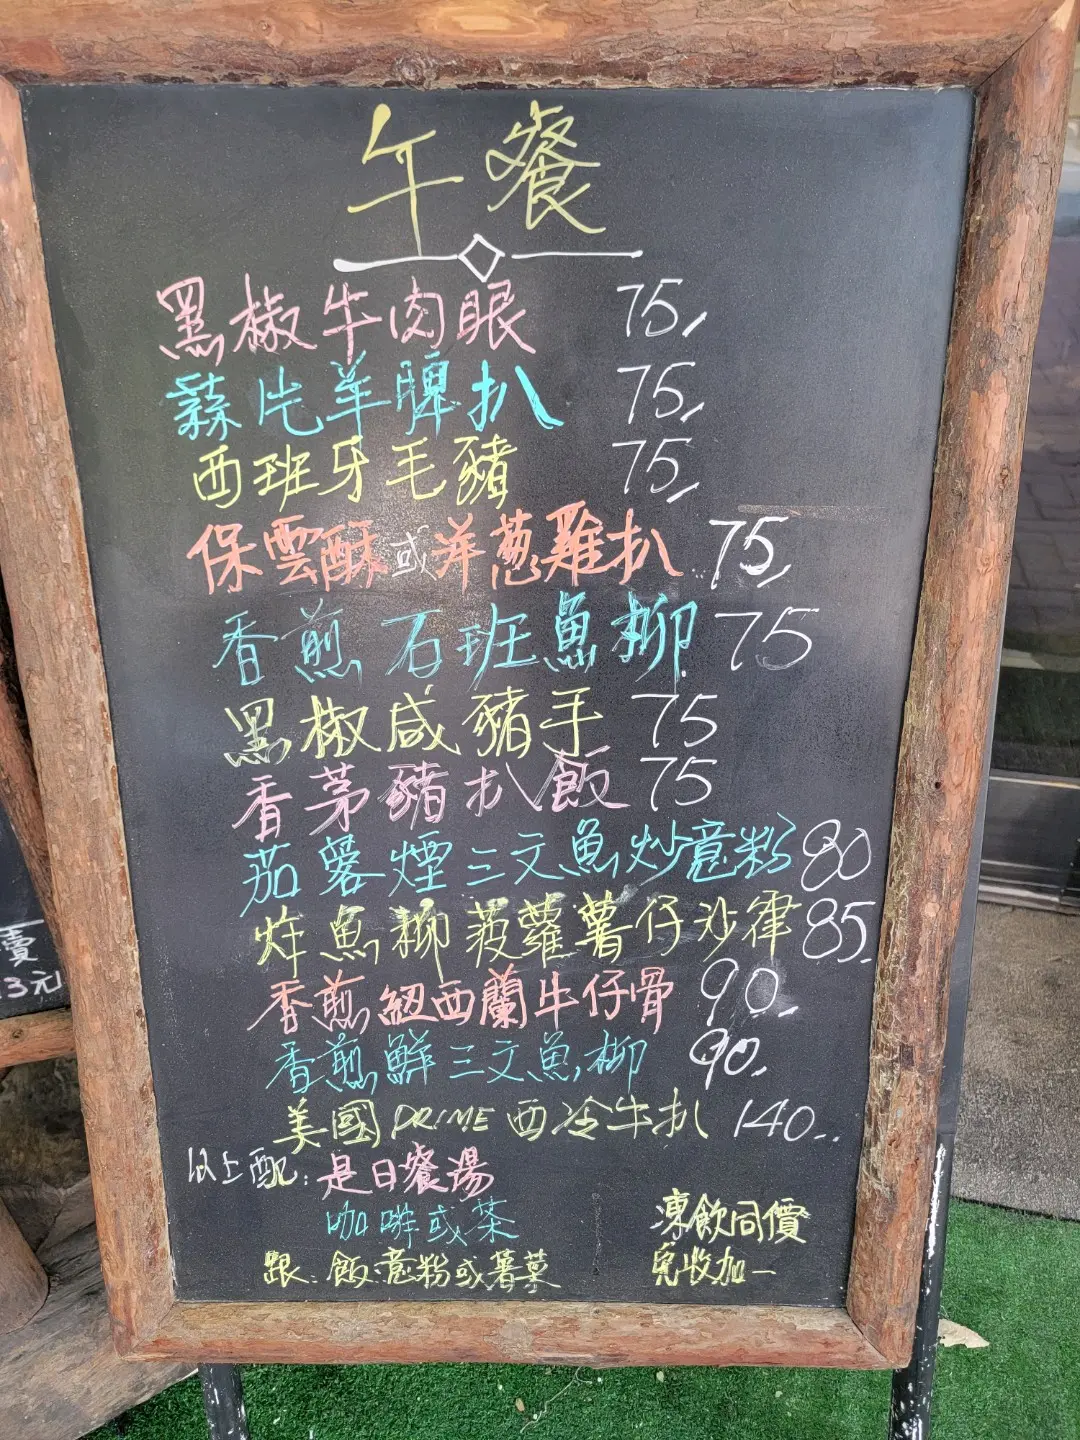 午餐
黑椒牛肉眼 75,
蒜片羊脾扒 75,
西班牙毛豬 75,
保雲酥或洋葱雞扒 75,
香煎石班魚柳 75
黑椒咸豬手 75
香茅豬扒飯 75
茄蓉煙三文魚炒意粉 80
炸魚柳菠蘿薯仔沙律 85.
香煎紐西蘭牛仔骨 90.
香煎鮮三文魚柳 90.
美國PRIME西冷牛扒 140..
以上配: 是日餐湯
咖啡或茶
跟: 飯.意粉或薯菜
凍飲同價
免收加一
賣
13元